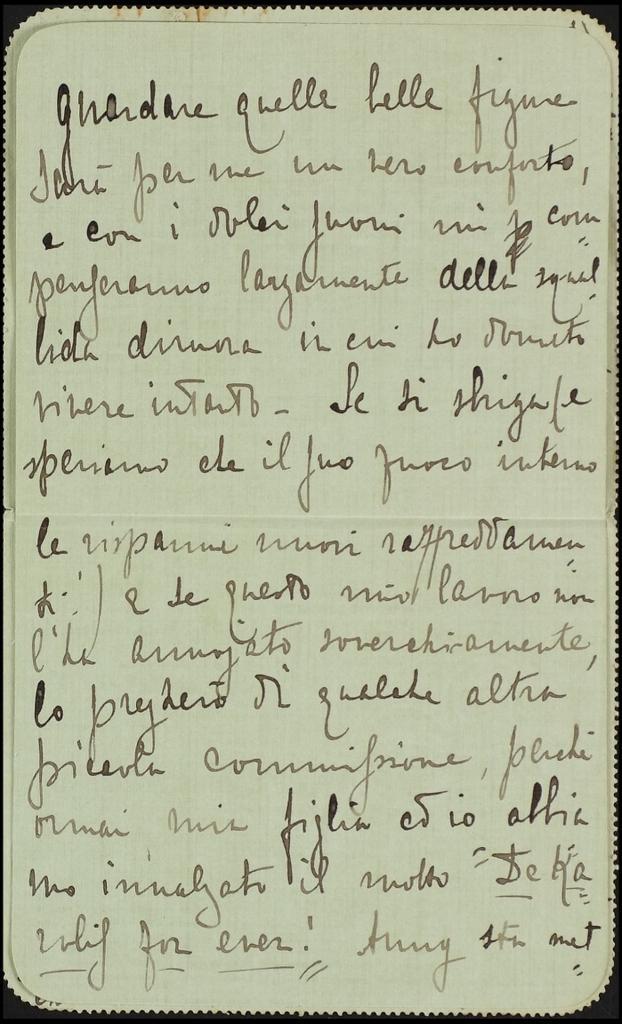 guardare quelle belle figure
Sarà per me un vero conforto,
e con i dolci suoni mi com
penseranno largamente della squal
lida dimora in cui ho dovuto
vivere intanto - Se si sbriga (e
speriamo che il suo fuoco interno
le risparmi nuovi raffreddamen
ti!) e se questo mio lavoro non
l'ha annojato soverchiamente,
lo pregherò di qualche altra
piccola commissione, perchè
ormai mia figlia ed io abbia
mo innalzato il motto "De Ka
rolis for ever!" Anny sta met